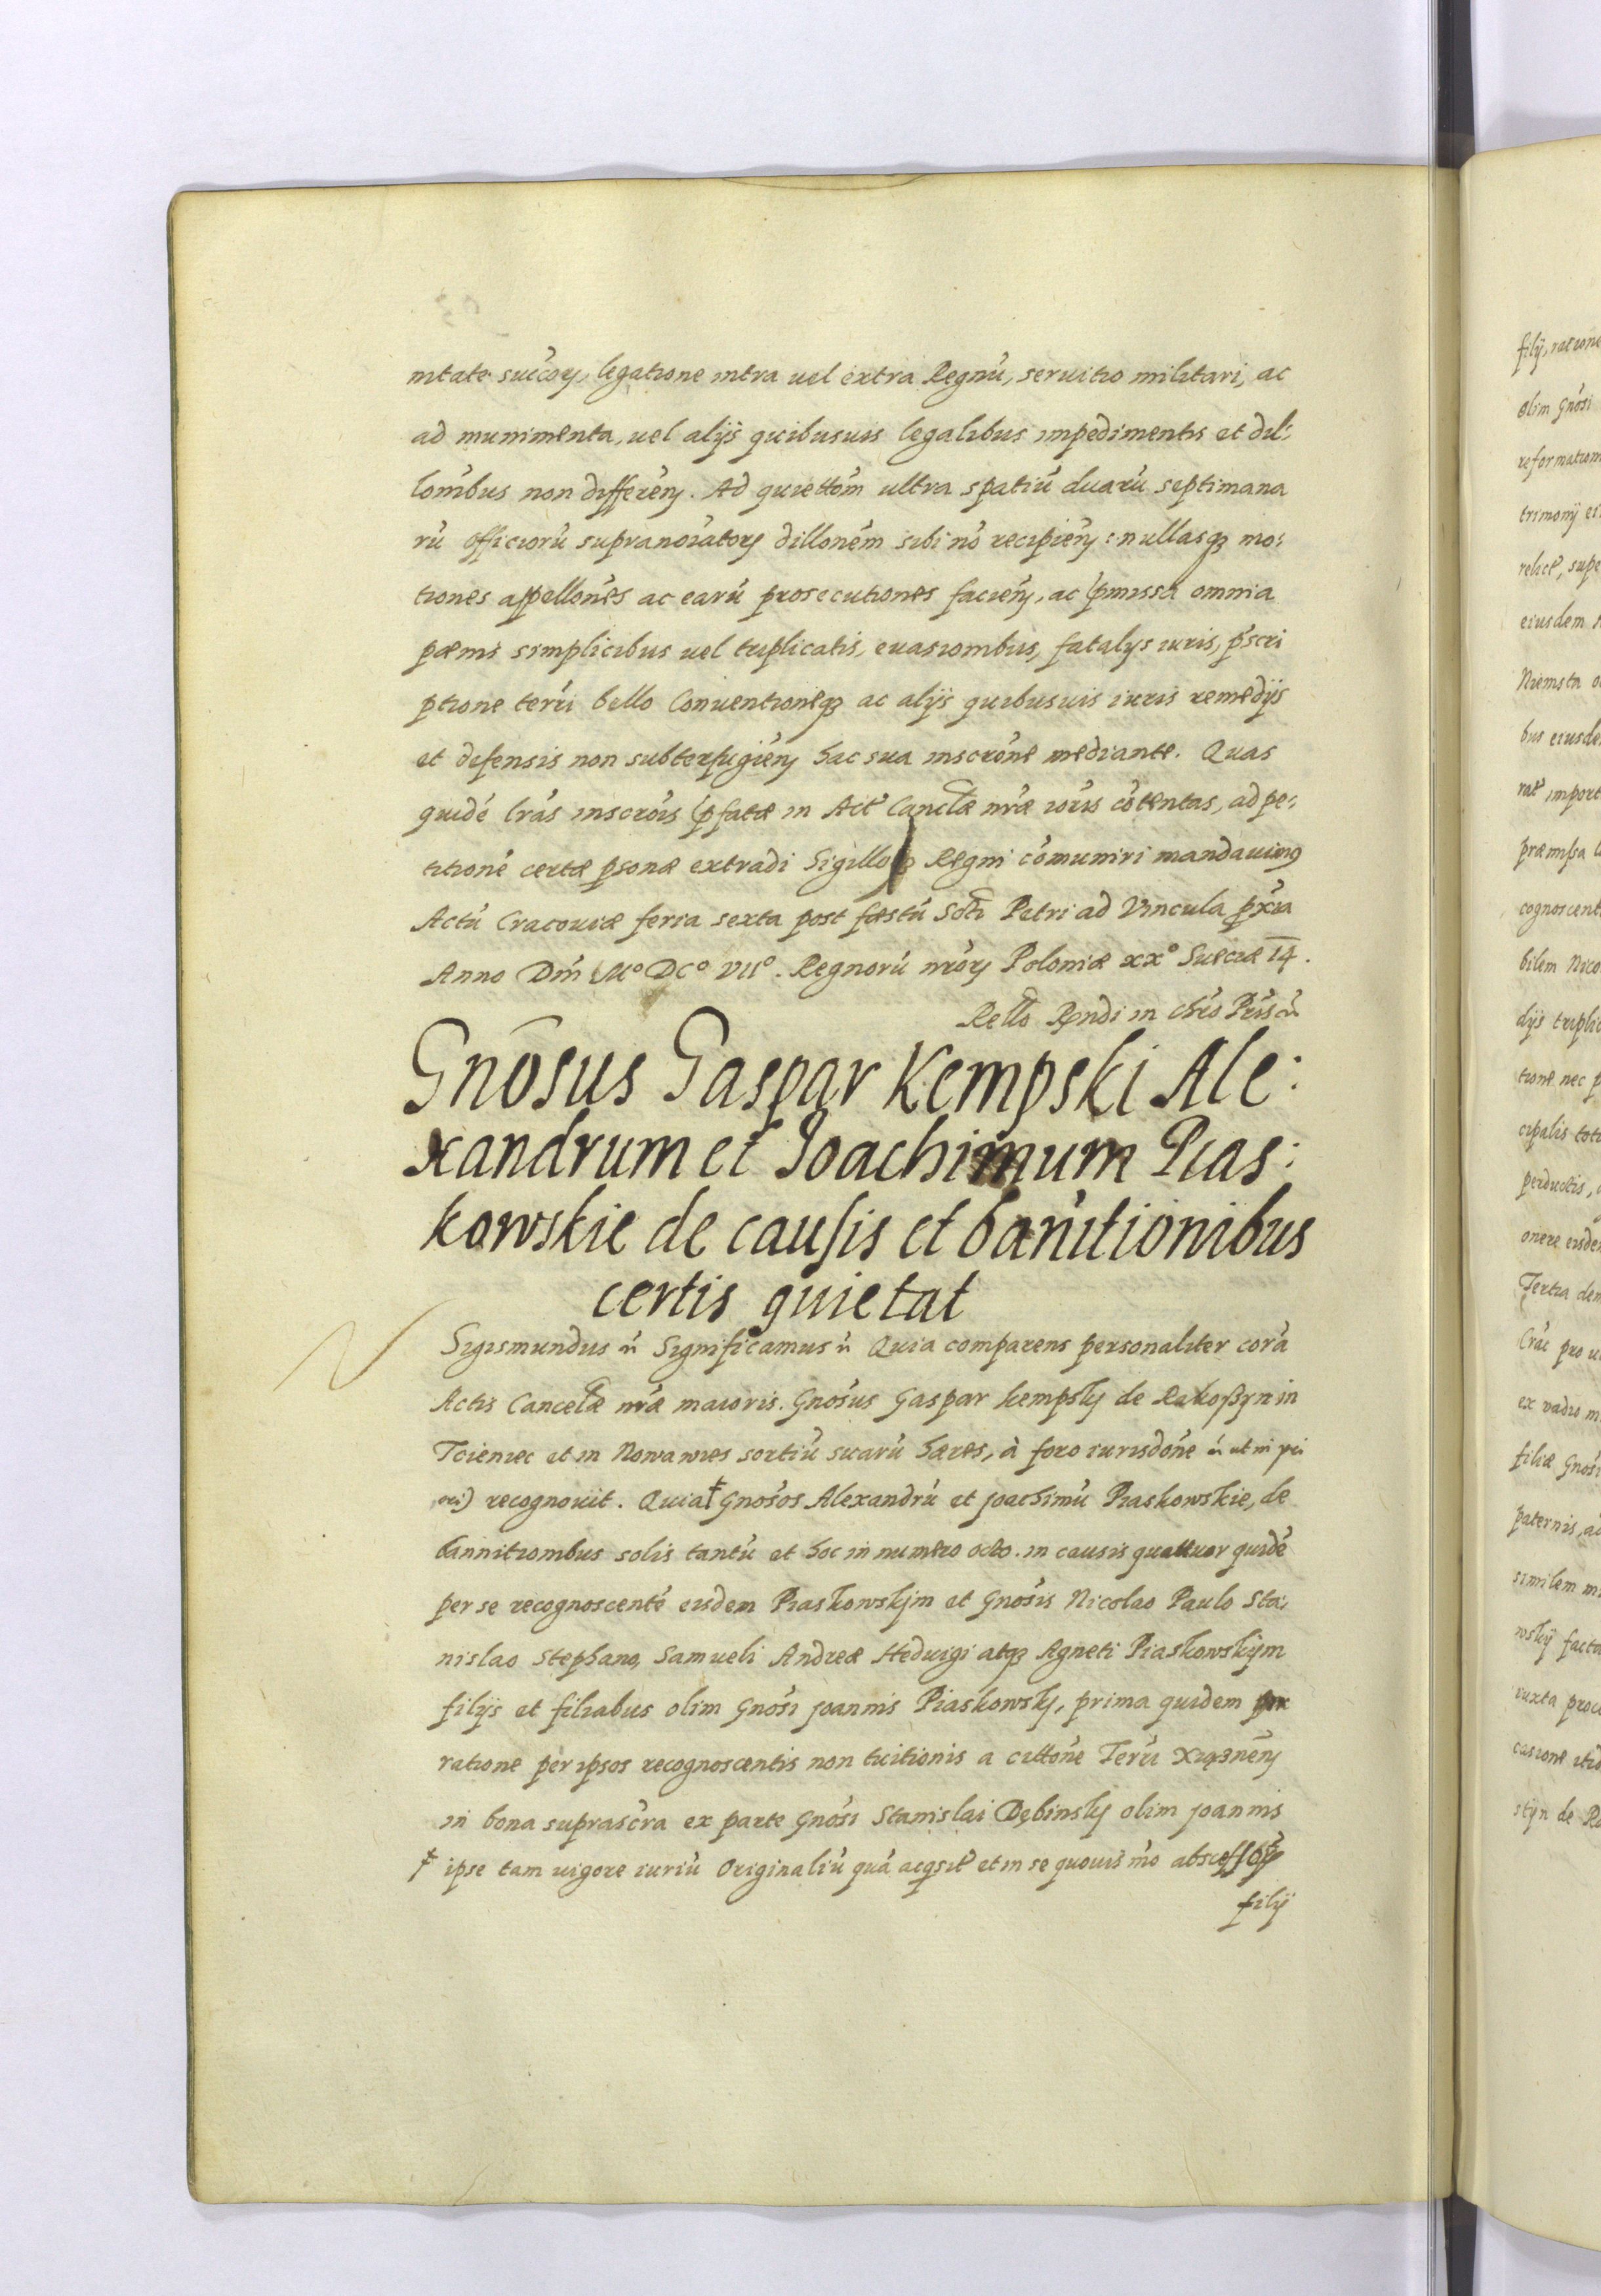 nitate succor, legatione intra uel extra Regnu, seruitio militari, ac
ad munimenta, uel alijs quibusuis legalibus impedimentis et dil:
lonibus non differen. Ad quiettom ultra spatiu duaru septimana
ru officioru supranoiator dillonem sibi no recipien: nullasq mo:
tiones appellones ac earu prosecutiones facien, ac pmissa omnia
pœnis simplicibus uel triplicatis, euasionibus, fatalijs iuris, pscri
ptione terri bello Conuentioneq ac alijs quibusuis iuris remedijs
et defensis non subterfugien hac sua inscrone mediante. Quas
quide lras inscrois pfatæ in Act Canclæ nræ ioris cotentas, ad pe:
titione certæ psonæ extradi Sigilloq Regni comuniri mandauimq
Actu Cracouiæ feria sexta post festu Scti Petri ad Vincula pxia
Anno Dni Mº DCº VIIº. Regnoru nror Poloniæ xxº Sueciæ 14.
Rello Rndi in Chro Pris
Gnosus Gaspar Kempski Ale:
xandrum et Joachimum Pias:
kowskie de causis et banitionibus
certis quietat
Sigismundus Significamus Quia comparens personaliter cora
Actis Cancelæ nræ maioris. Gnosus Gaspar kempsky de Rakoszyn in
Tcieniec et in Nowawies sortiu suaru hæres, à foro iurisdone ut in pri
ori) recognouit. Quia ‡ Gnosos Alexandru et Joachimu Piaskowskie, de
bannitionibus solis tantu et hoc in numero octo. in causis quattuor quide
per se recognoscente eisdem Piaskowskim et Gnosis Nicolao Paulo Sta:
nislao Stephano, Samueli Andreæ Heduigi atq Agneti Piaskowskijm
filijs et filiabus olim Gnosi Joannis Piaskowsky, prima quidem
ratione per ipsos recognoscentis non tuitionis a cittone Terri Xiąznen
in bona suprascra ex parte Gnosi Stanislai Dębinsky olim Joannis
‡ ipse tam uigore iuriu Originaliu qua acqsit et in se quouis mo
filij
filij, ratione
olim Gnosi
reformation
trimonij
relict, supe
eiusdem
Niemsta
bus eiusde
rat import
præmissa
cognoscent
bilem Nico
dijs triplic
tione nec p
cipalis toti
perductis,
onere eisde
Tertia den
Crac pro
ex vadio m
filiæ Gnosi
paternis, ac
similem m
wskij facta
iuxta proc
casione itid
styn de Ra